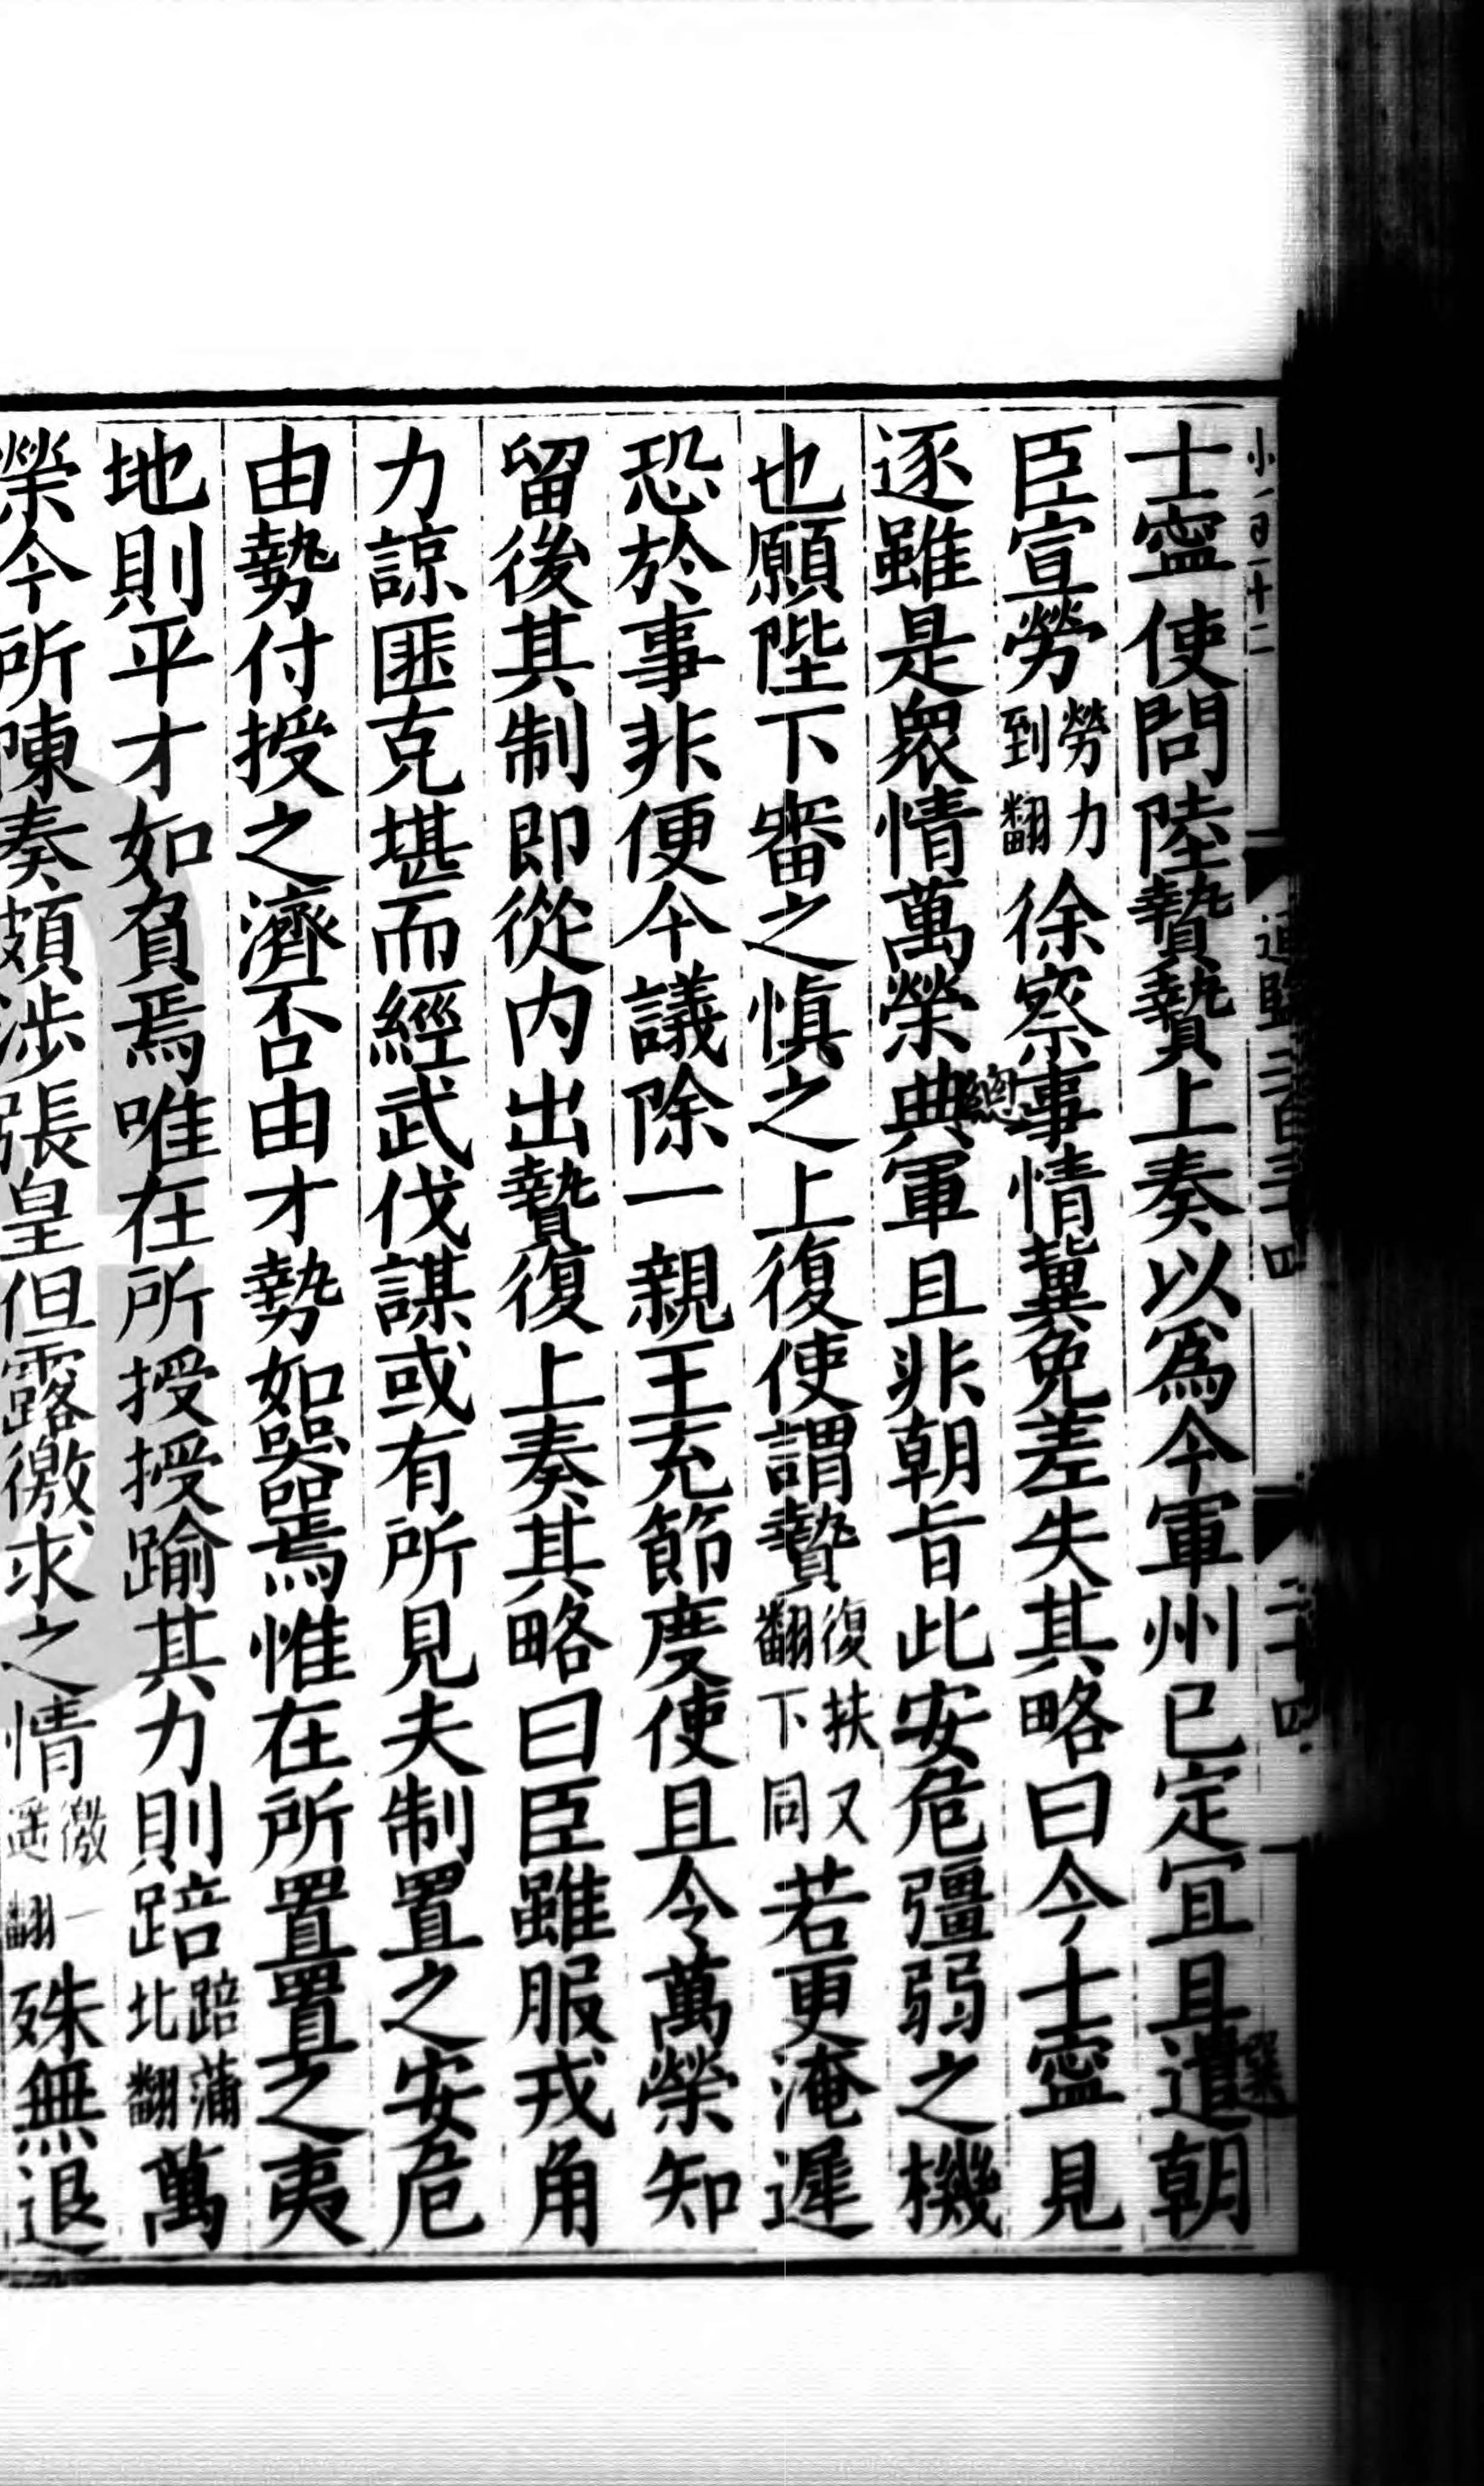 小一百二十二
通鑑二百三十四
二十四
士寧使問陸贄贄上奏以爲今軍州已定宜且遣朝
選
臣宣勞勞力到翻徐察事情冀免差失其略曰今士寧見
總
逐雖是衆情萬榮典軍且非朝旨此安危彊弱之機
也願陛下審之慎之上復使謂贄復扶又翻下同若更淹遲
恐於事非便今議除一親王充節度使且令萬榮知
留後其制即從内出贄復上奏其略曰臣雖服戎角
力諒匪克堪而經武伐謀或有所見夫制置之安危
由勢付授之濟否由才勢如器焉惟在所置置之夷
地則平才如負焉唯在所授授踰其力則踣踣蒲北翻萬
榮今所陳奏頗涉張皇但露徼求之情徼一遥翻殊無退